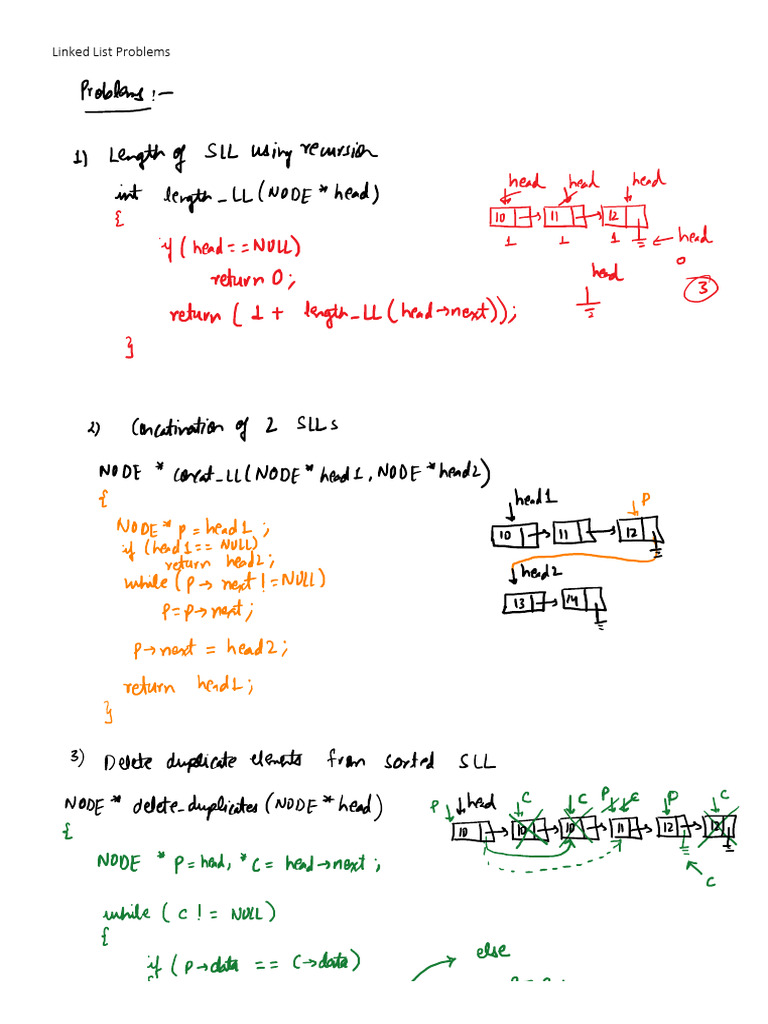 Linked List Problems
Problems:-
1) Length of SLL using recursion
int length_LL(NODE *head)
{
if(head==NULL)
return 0;
return(1 + length_LL(head→next));
}
head head head
10 11 12
1 1 1 head
0
head
3
2) Concatination of 2 SLLs
NODE * concat_LL(NODE *head1, NODE *head2)
{
NODE* p=head1;
if (head1== NULL)
return head2;
while(p→next!=NULL)
p=p→next;
p→next = head2;
return head1;
}
head1 p
10 11 12
head2
13 14
3) Delete duplicate elements from sorted SLL
NODE * delete_duplicates(NODE *head)
{
NODE *p=head, *c=head→next;
while (c != NULL)
{
if (p→data == c→data)
{
p head c c p c p c
10 10 10 11 12 12
c
else